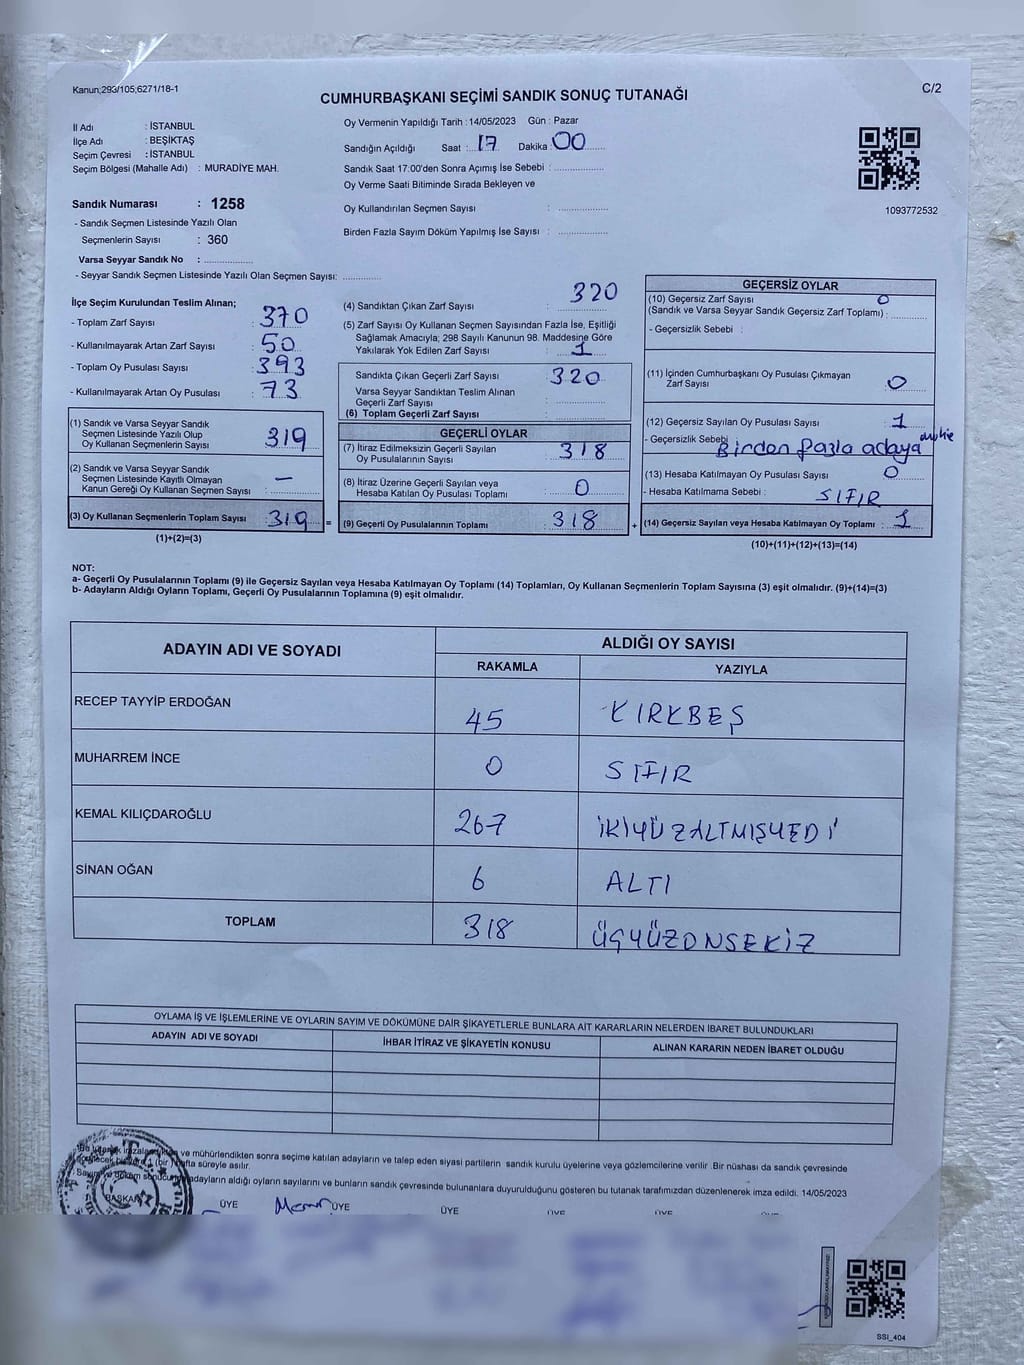 Kanun;293/105;6271/18-1
C/2
CUMHURBAŞKANI SEÇİMİ SANDIK SONUÇ TUTANAĞI
İl Adı : İSTANBUL
İlçe Adı : BEŞİKTAŞ
Seçim Çevresi : İSTANBUL
Seçim Bölgesi (Mahalle Adı) : MURADİYE MAH.
Sandık Numarası : 1258
- Sandık Seçmen Listesinde Yazılı Olan
Seçmenlerin Sayısı : 360
Varsa Seyyar Sandık No :
- Seyyar Sandık Seçmen Listesinde Yazılı Olan Seçmen Sayısı:
Oy Vermenin Yapıldığı Tarih : 14/05/2023 Gün : Pazar
Sandığın Açıldığı Saat : 17 Dakika : 00
Sandık Saat 17:00'den Sonra Açımış İse Sebebi :
Oy Verme Saati Bitiminde Sırada Bekleyen ve
Oy Kullandırılan Seçmen Sayısı :
Birden Fazla Sayım Döküm Yapılmış İse Sayısı :
1093772532
İlçe Seçim Kurulundan Teslim Alınan;
- Toplam Zarf Sayısı : 370
- Kullanılmayarak Artan Zarf Sayısı : 50
- Toplam Oy Pusulası Sayısı : 393
- Kullanılmayarak Artan Oy Pusulası : 73
(1) Sandık ve Varsa Seyyar Sandık
Seçmen Listesinde Yazılı Olup
Oy Kullanan Seçmenlerin Sayısı : 319
(2) Sandık ve Varsa Seyyar Sandık
Seçmen Listesinde Kayıtlı Olmayan
Kanun Gereği Oy Kullanan Seçmen Sayısı : —
(3) Oy Kullanan Seçmenlerin Toplam Sayısı : 319
(1)+(2)=(3)
(4) Sandıktan Çıkan Zarf Sayısı : 320
(5) Zarf Sayısı Oy Kullanan Seçmen Sayısından Fazla İse, Eşitliği
Sağlamak Amacıyla; 298 Sayılı Kanunun 98. Maddesine Göre
Yakılarak Yok Edilen Zarf Sayısı : 1
Sandıkta Çıkan Geçerli Zarf Sayısı : 320
Varsa Seyyar Sandıktan Teslim Alınan
Geçerli Zarf Sayısı :
(6) Toplam Geçerli Zarf Sayısı :
GEÇERLİ OYLAR
(7) İtiraz Edilmeksizin Geçerli Sayılan
Oy Pusulalarının Sayısı : 318
(8) İtiraz Üzerine Geçerli Sayılan veya
Hesaba Katılan Oy Pusulası Toplamı : 0
= (9) Geçerli Oy Pusulalarının Toplamı : 318
GEÇERSİZ OYLAR
(10) Geçersiz Zarf Sayısı 0
(Sandık ve Varsa Seyyar Sandık Geçersiz Zarf Toplamı) :
- Geçersizlik Sebebi :
(11) İçinden Cumhurbaşkanı Oy Pusulası Çıkmayan
Zarf Sayısı : 0
(12) Geçersiz Sayılan Oy Pusulası Sayısı : 1
- Geçersizlik Sebebi : Birden fazla adaya
(13) Hesaba Katılmayan Oy Pusulası Sayısı : 0
- Hesaba Katılmama Sebebi : SIFIR
+ (14) Geçersiz Sayılan veya Hesaba Katılmayan Oy Toplamı : 1
(10)+(11)+(12)+(13)=(14)
NOT:
a- Geçerli Oy Pusulalarının Toplamı (9) ile Geçersiz Sayılan veya Hesaba Katılmayan Oy Toplamı (14) Toplamları, Oy Kullanan Seçmenlerin Toplam Sayısına (3) eşit olmalıdır. (9)+(14)=(3)
b- Adayların Aldığı Oyların Toplamı, Geçerli Oy Pusulalarının Toplamına (9) eşit olmalıdır.
ADAYIN ADI VE SOYADI
ALDIĞI OY SAYISI
RAKAMLA YAZIYLA
RECEP TAYYİP ERDOĞAN 45 KIRKBEŞ
MUHARREM İNCE 0 SIFIR
KEMAL KILIÇDAROĞLU 267 İKİYÜZALTMIŞYEDİ
SİNAN OĞAN 6 ALTI
TOPLAM 318 ÜÇYÜZONSEKİZ
OYLAMA İŞ VE İŞLEMLERİNE VE OYLARIN SAYIM VE DÖKÜMÜNE DAİR ŞİKAYETLERLE BUNLARA AİT KARARLARIN NELERDEN İBARET BULUNDUKLARI
ADAYIN ADI VE SOYADI İHBAR İTİRAZ VE ŞİKAYETİN KONUSU ALINAN KARARIN NEDEN İBARET OLDUĞU
ve mühürlendikten sonra seçime katılan adayların ve talep eden siyasi partilerin sandık kurulu üyelerine veya gözlemcilerine verilir. Bir nüshası da sandık çevresinde
süreyle asılır.
adayların aldığı oyların sayılarını ve bunların sandık çevresinde bulunanlara duyurulduğunu gösteren bu tutanak tarafımızdan düzenlenerek imza edildi. 14/05/2023
BAŞKAN ÜYE ÜYE ÜYE ÜYE ÜYE
SSI_404